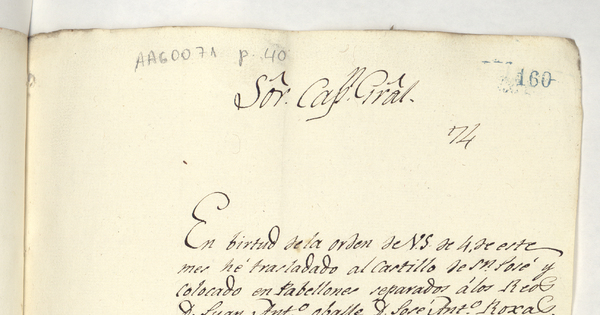 AAG0071 p. 40
160
Sōr. Capⁿ. Grāl.
74
En birtud de la orden de VS. de 4, de este
mes hé trasladado al Castillo de Sⁿ. José y
colocado en Pabellones separados álos Reos
D. Juan Antº. oballe D. José Antº. Roxas